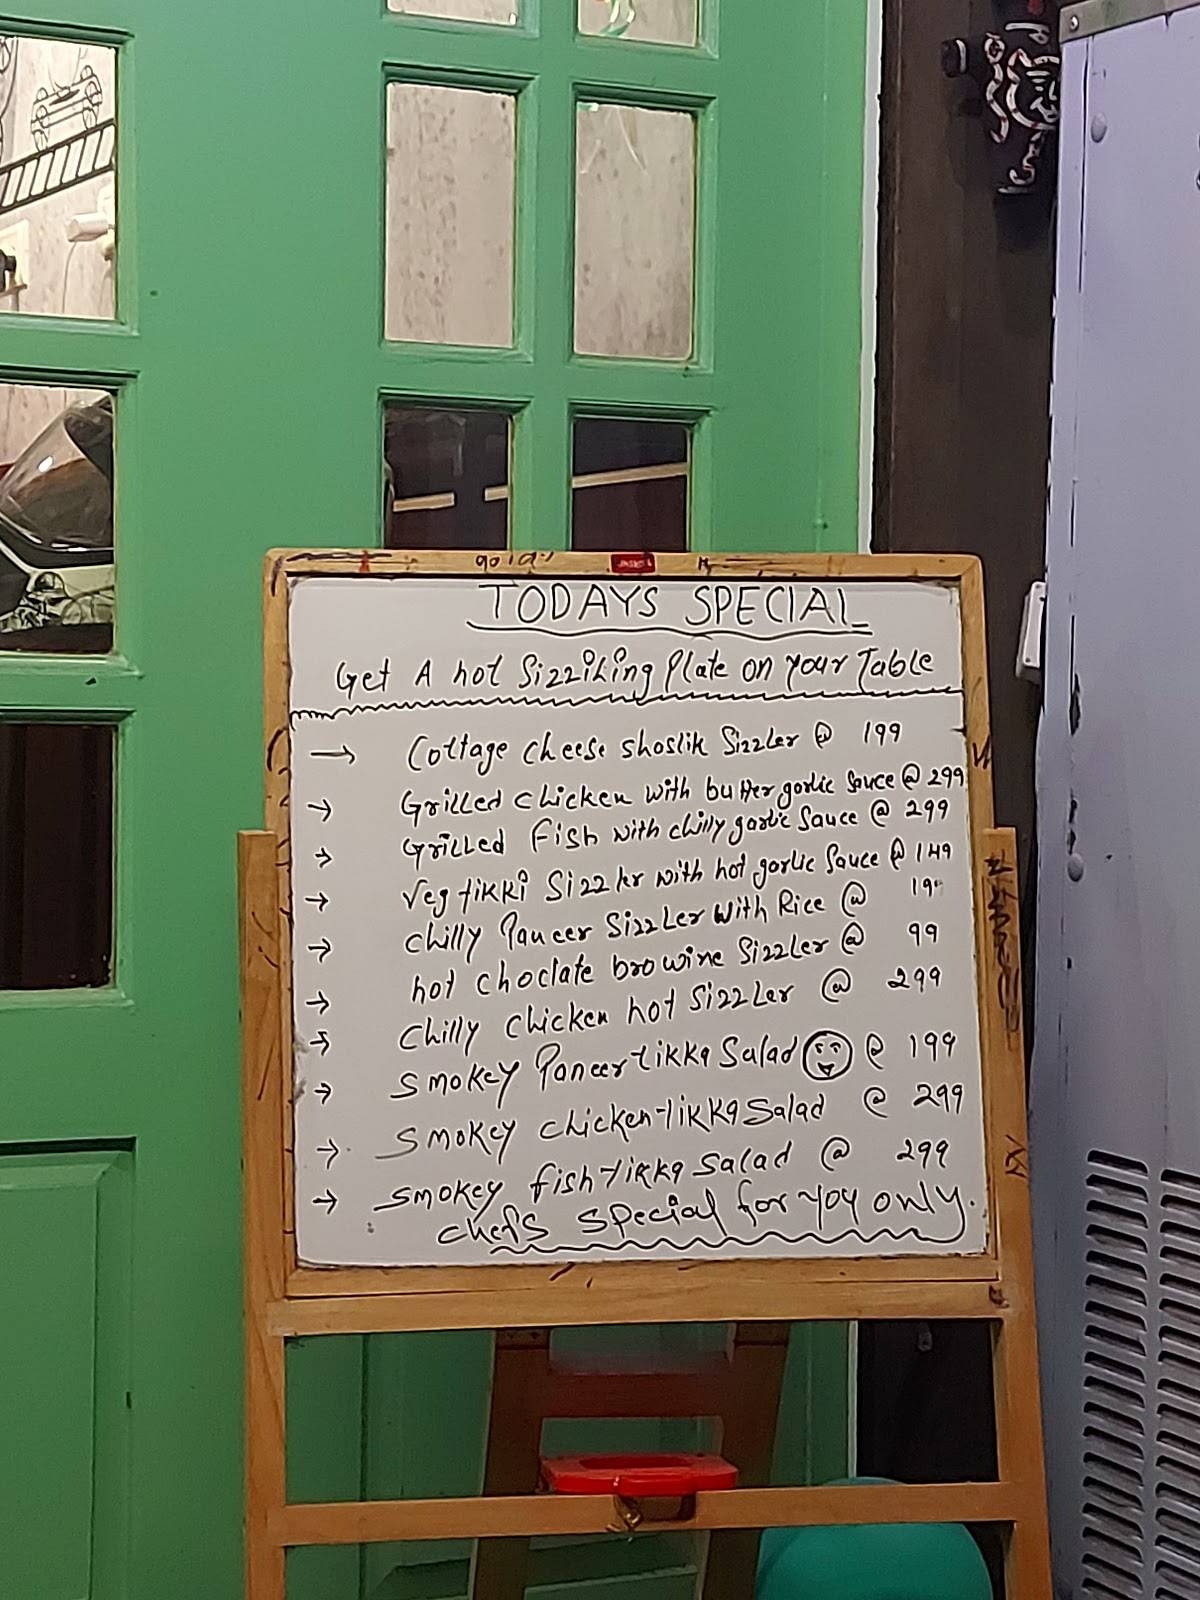 TODAYS SPECIAL
Get A hot Sizziling Plate on your Table
→ Cottage cheese shoslik Sizzler @ 199
→ Grilled chicken with butter garlic Sauce @ 299
→ Grilled fish with chilly garlic Sauce @ 299
→ Veg tikki Sizzler with hot garlic Sauce @ 149
→ chilly Paneer Sizzler with Rice @
→ hot choclate browine Sizzler @ 99
→ chilly chicken hot Sizzler @ 299
→ smokey Paneer tikka Salad @ 199
→ smokey chicken tikka salad @ 299
→ smokey fish tikka salad @ 299
chefs special for you only.